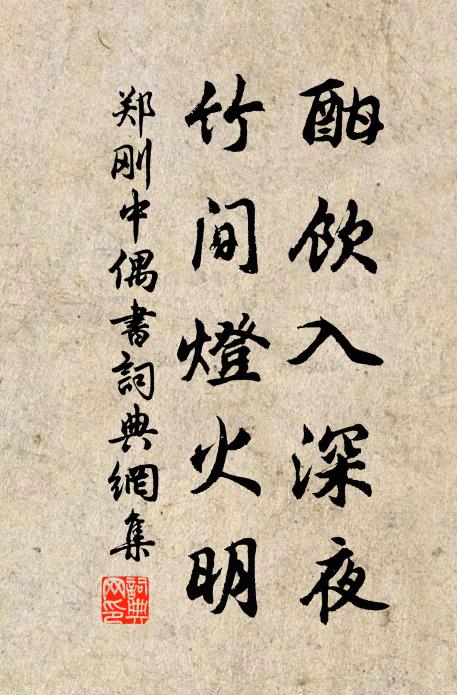 酣飲入深夜
竹間燈火明
郑刚中偶書詞典網集
詞典網印